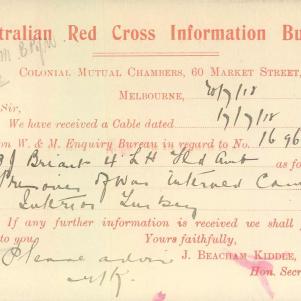 tralian Red Cross Information Bu
Colonial Mutual Chambers, 60 Market Street,
Melbourne, 20/7/18
Sir,
We have received a Cable dated 17/7/18
om W. & M. Enquiry Bureau in regard to No. 16 96
J Briant 4 LH Fld Amb as fo
Prisoner of War Interned Cam
Interior Turkey
If any further information is received we shall
to you. Yours faithfully,
Please advise J. Beacham Kiddle,
Hon. Secre